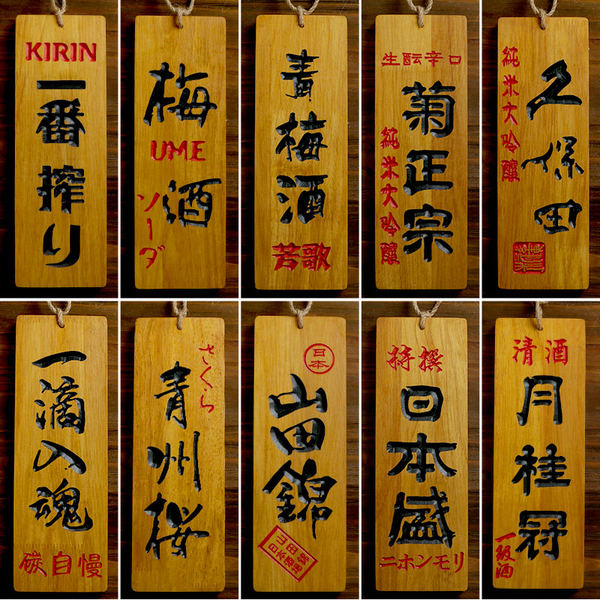 KIRIN
一番搾り
梅
UME
酒
ソーダ
青梅酒
芳歌
生酛辛口
菊正宗
純米大吟醸
純米大吟醸
久保田
一滴入魂
碳自慢
さくら
青州桜
日本
山田錦
特撰
日本盛
ニホンモリ
清酒
月桂冠
一級酒